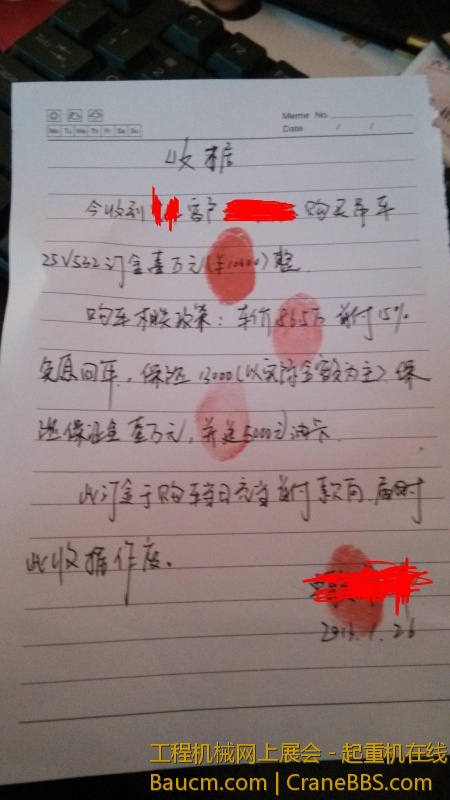 Memo No.
Date / /
Mo Tu We Th Fr Sa Su
收据
今收到 客户 购买吊车
25V532订金壹万元(¥10000)整
购车相关政策:车价86.5万 首付15%
免息回年,保险13000(以实际金额为主)保
险保证金壹万元,并送5000元油卡.
此订金于购车当日充当首付款间 届时
此收据作废.
1.26
工程机械网上展会 - 起重机在线
Baucm.com | CraneBBS.com